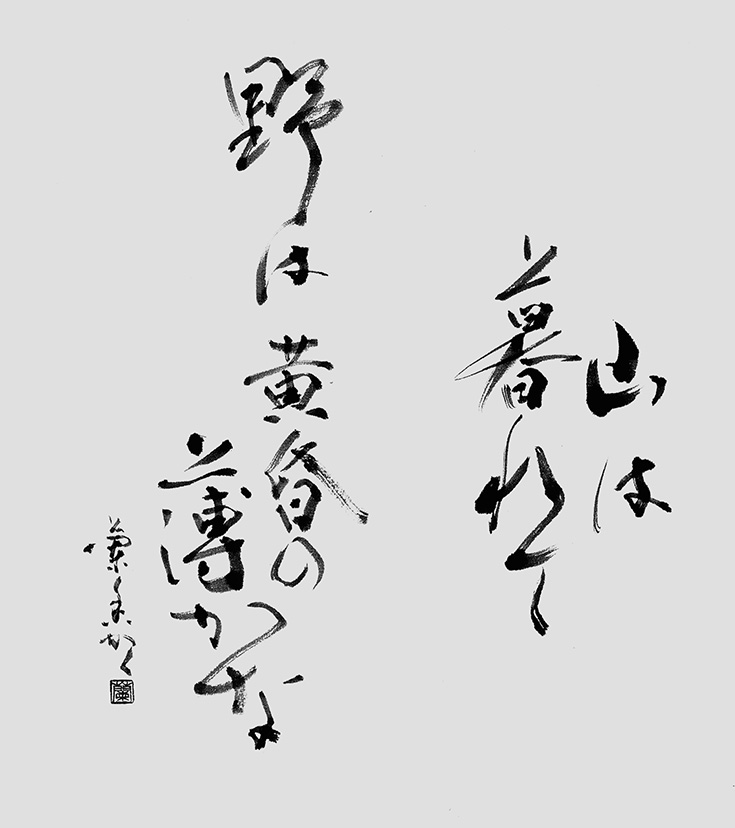 山は
暮れて
野は黄昏の
薄かな